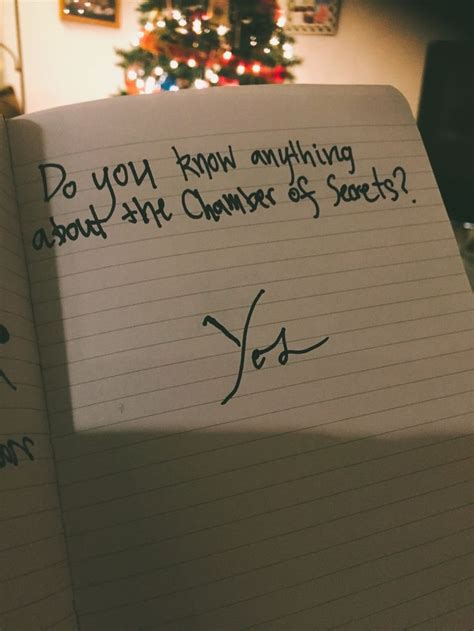 Do you know anything
about the Chamber of Secrets?
Yes